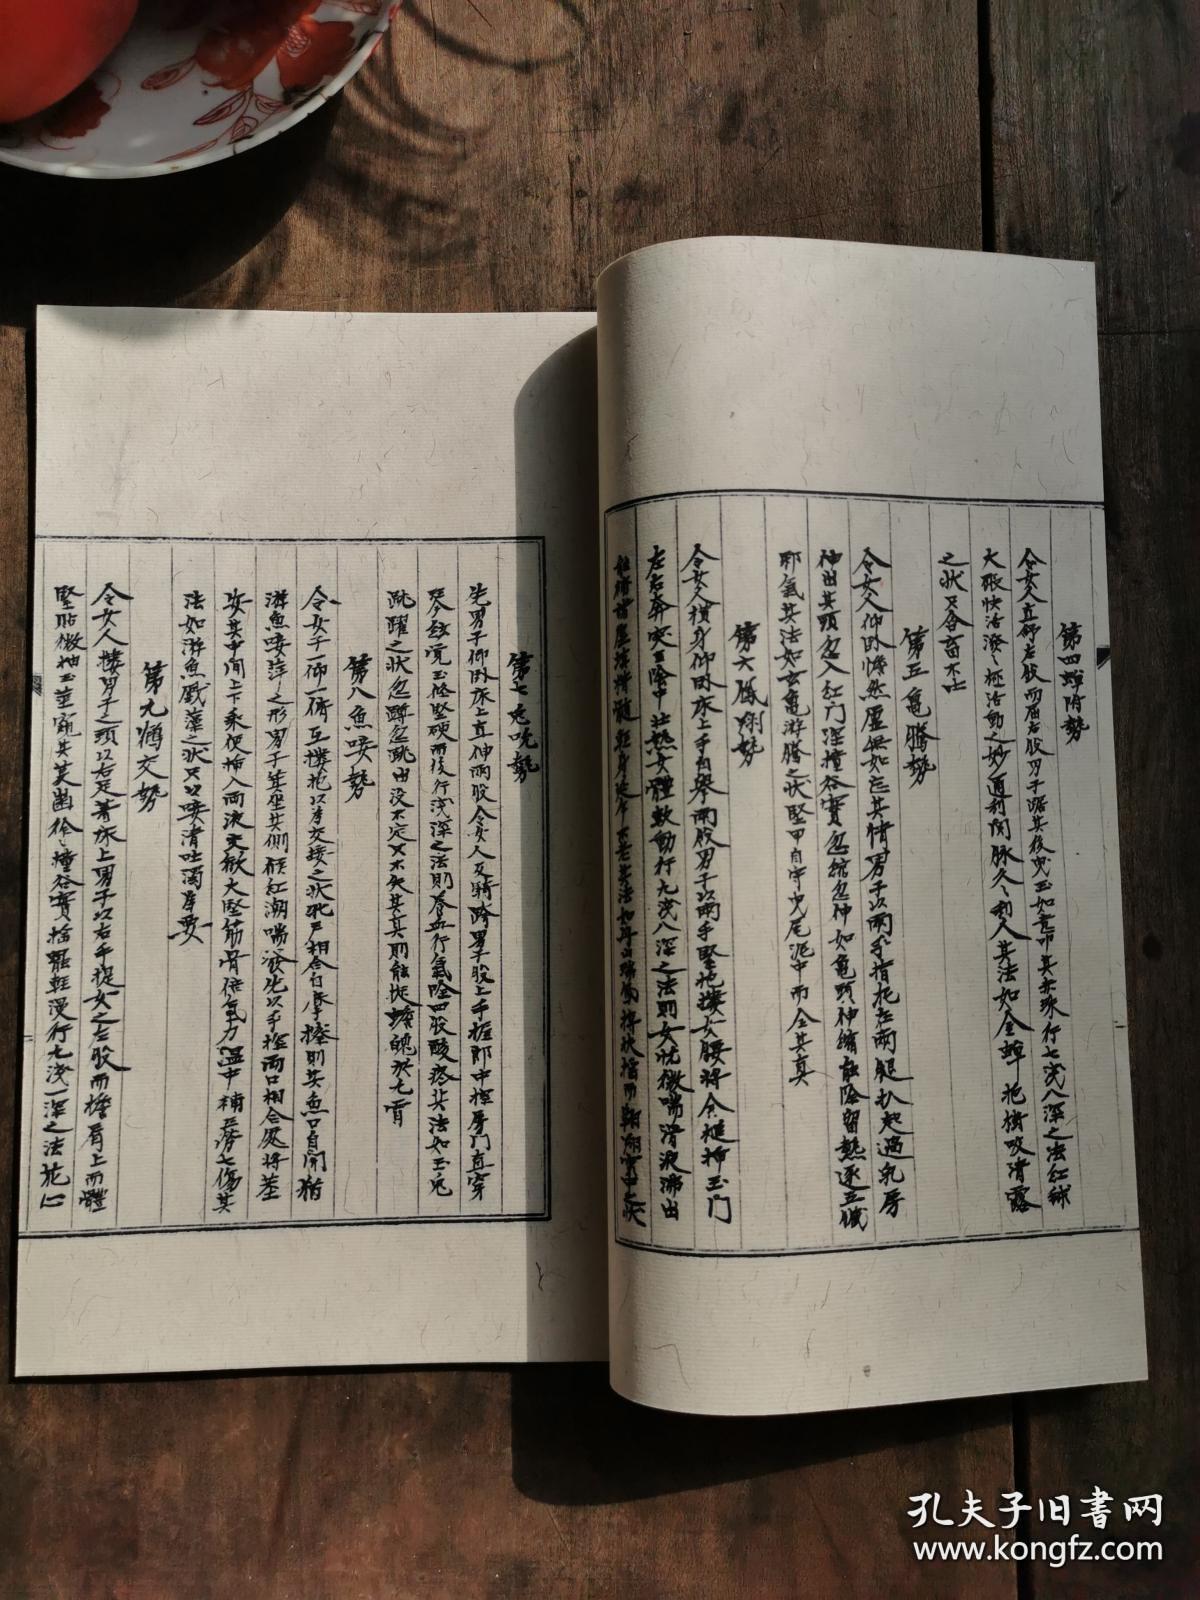 第四蟬附勢
令女人立舒左股而屈右股男子踞其後曳玉如意叩其赤珠行七淺八深之法紅毬
大張快活潑〻極活動之妙通利関脉久〻利人其法如金蟬抱樹吸清露
之狀又含畜不吐
第五龜騰勢
令女人仰卧憺然虛無如忘其情男子以兩手指托在兩腿扒起過乳房
伸出其頭忽入紅门深撞谷實忽縮忽伸如龜頭伸縮能除留熱逐五臟
邪氣其法如玄龜游騰之狀堅甲自守曳尾泥中而全其真
第六鳳翔勢
令女人橫身仰卧床上手自舉兩股男子以兩手堅抱摟女腰將金槌插玉门
左右奔突玉陰中壯熱女體歆動行九淺八深之法則女狀微喘滑液沸出
第七兎吮勢
先男子仰卧床上直伸兩股令女人反騎跨男子股上手握郎中挃房门直穿
琴絃覺玉條堅硬而後行淺深之法則養血行氣除四肢酸疼其法如玉兎
跳躍之狀忽蹲忽跳出没不定又不失其真則能捉蟾魄於九霄
第八魚唼勢
令女子一仰一俯互摟抱以為交接之狀牝戶相合自摩擦則其魚口自開猶
游魚唼萍之形男子箕坐其側候紅潮喘發先以手挃兩口相合處將莖
安其中间上下乘便插入兩液交歡大堅筋骨倍氣力温中補五勞七傷其
法如游魚戲藻之狀只以唼清吐濁為要
第九鶴交勢
令女人摟男子之頭以右足著床上男子以右手提女之左股而擔肩上而體
堅貼微抽玉莖竊其芙齒徐〻撞谷實擒罷輕漫行九淺一深之法花心